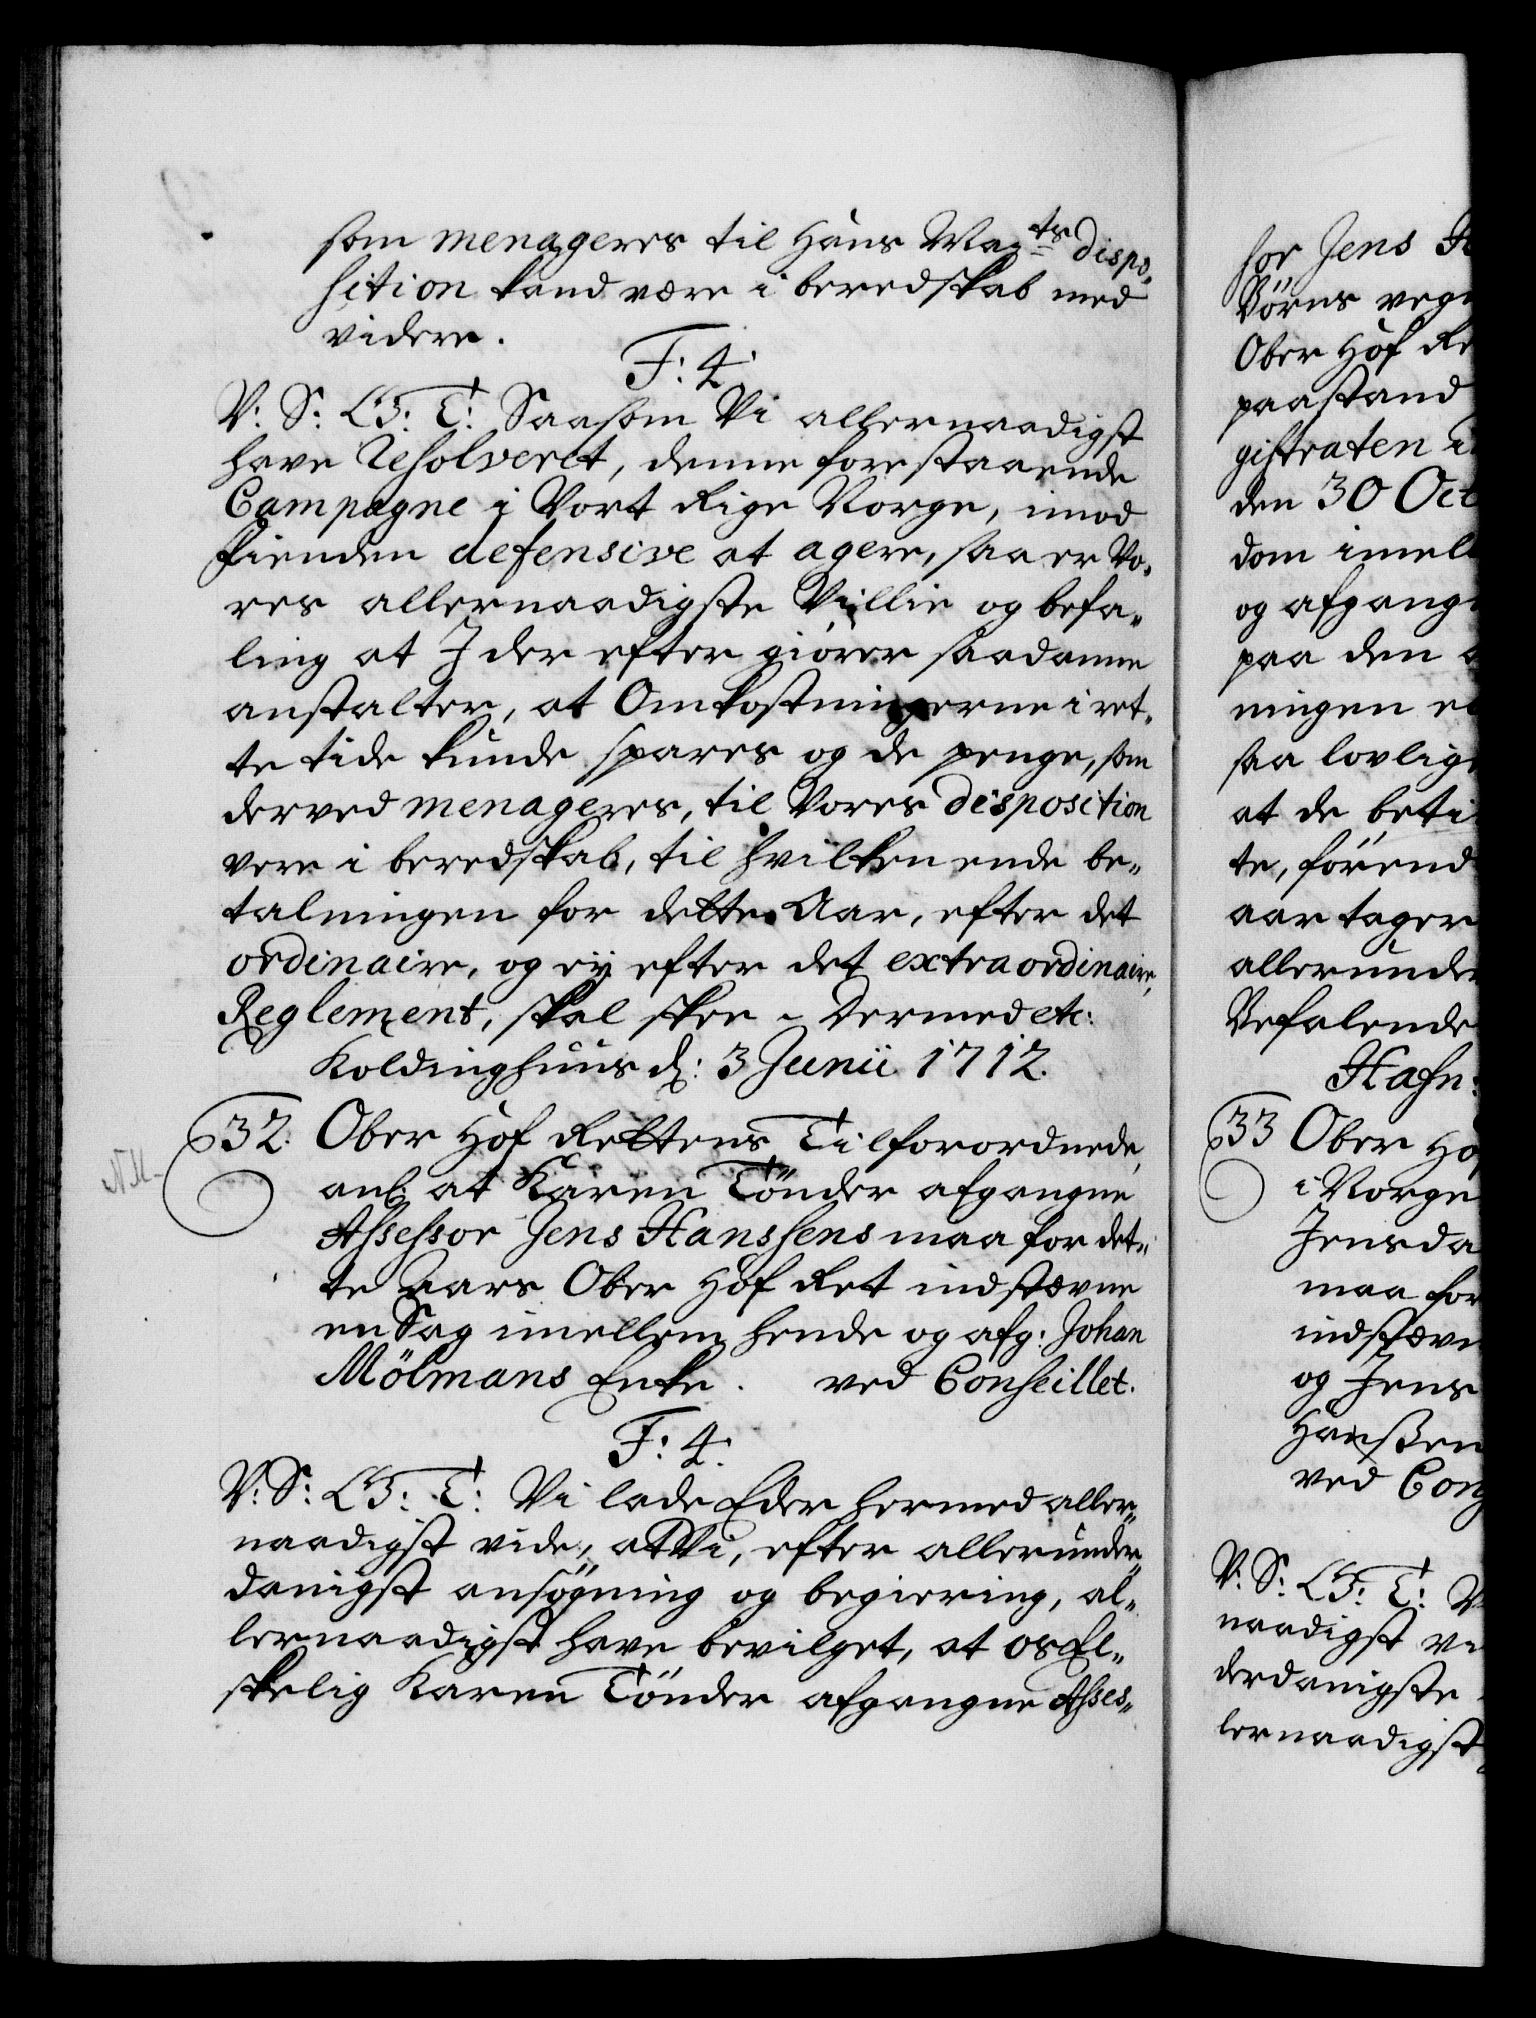 som menageres til Hans May.ts dispo,
sition kand være i beredskab med
videre.
F: 4.
V: S: G: T: Saasom Vi allernaadigst
have Resolveret, denne forestaaende
Campagne i Vort Rige Norge, imod
fienden defensive at agere, saa er Vo,
res allernaadigste Villie og befa,,
ling at I der efter giörer saadanne
anstalter, at Omkostningerne i ret,
te tide kunde spares og de penge, som
derved menageres, til Vores disposition
vere i beredskab, til hvilken ende be,,
talningen for dette Aar, efter det
ordinaire, og ey efter det extraordinaire,
Reglement, skal skee - Dermed etc:
Koldinghuus d: 3 Junii 1712.
32. Ober Hof Rettens Tilforordnede,
anl at Karen Tönder afgangne
Assessor Jens Hanssens maa for det,,
te Aars Ober Hof Ret indstævne
en Sag imellem hende og afg: Johan
Mölmans Enke. ved Conseillet.
F: 4.
V: S: G: T: Vi lade Eder hermed aller,,
naadigst vide, at Vi, efter allerunder,,
danigst ansögning og begiering, al,,
lernaadigst have bevilget, at os El,,
skelig Karen Tönder afgangne Asses,,
for Jens H
Börns veg
Ober Hof Re
paastand
gistraten i
den 30 Oct
dom imell
og afgang
paa den
ningen e
saa lovlig
at de beti
te, förend
aar tager
allerunde
Befalende
Hafn:
33 Ober Ho
i Norge
Jensda
maa for
indstævn
og Jens
Hanßen
ved Cons
V: S: G: T: V
naadigst vi
derdanigste
lernaadigst